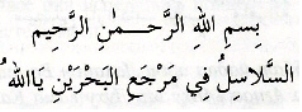 بِسمِ اللهِ الرَّحـمـٰنِ الرَّحِيمِ
السَّلاسِلُ فِي مَرْجَعِ البَحْرَيْنِ يَااللهُ